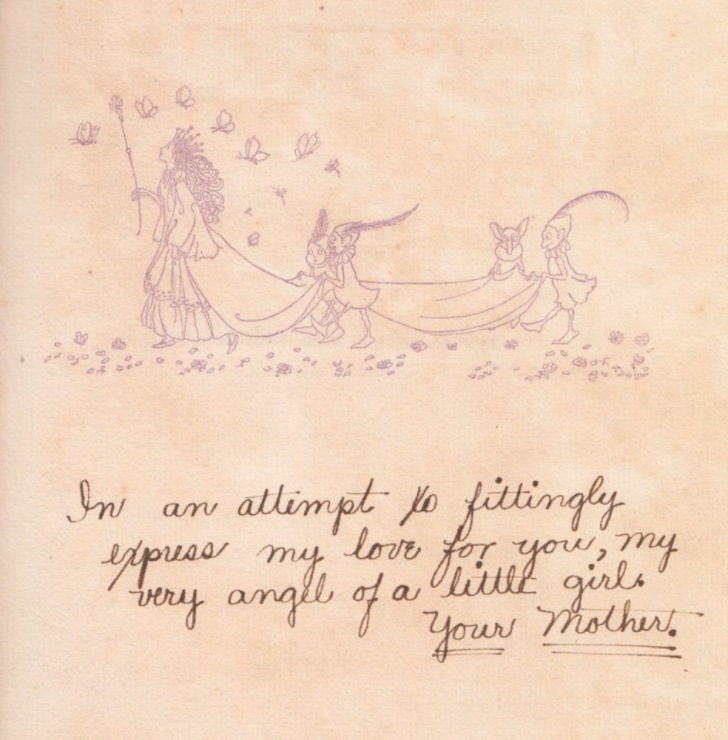 In an attempt to fittingly
express my love for you, my
very angel of a little girl.
Your Mother.